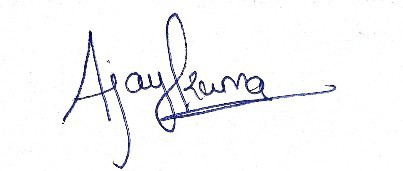 Ajay Kuma